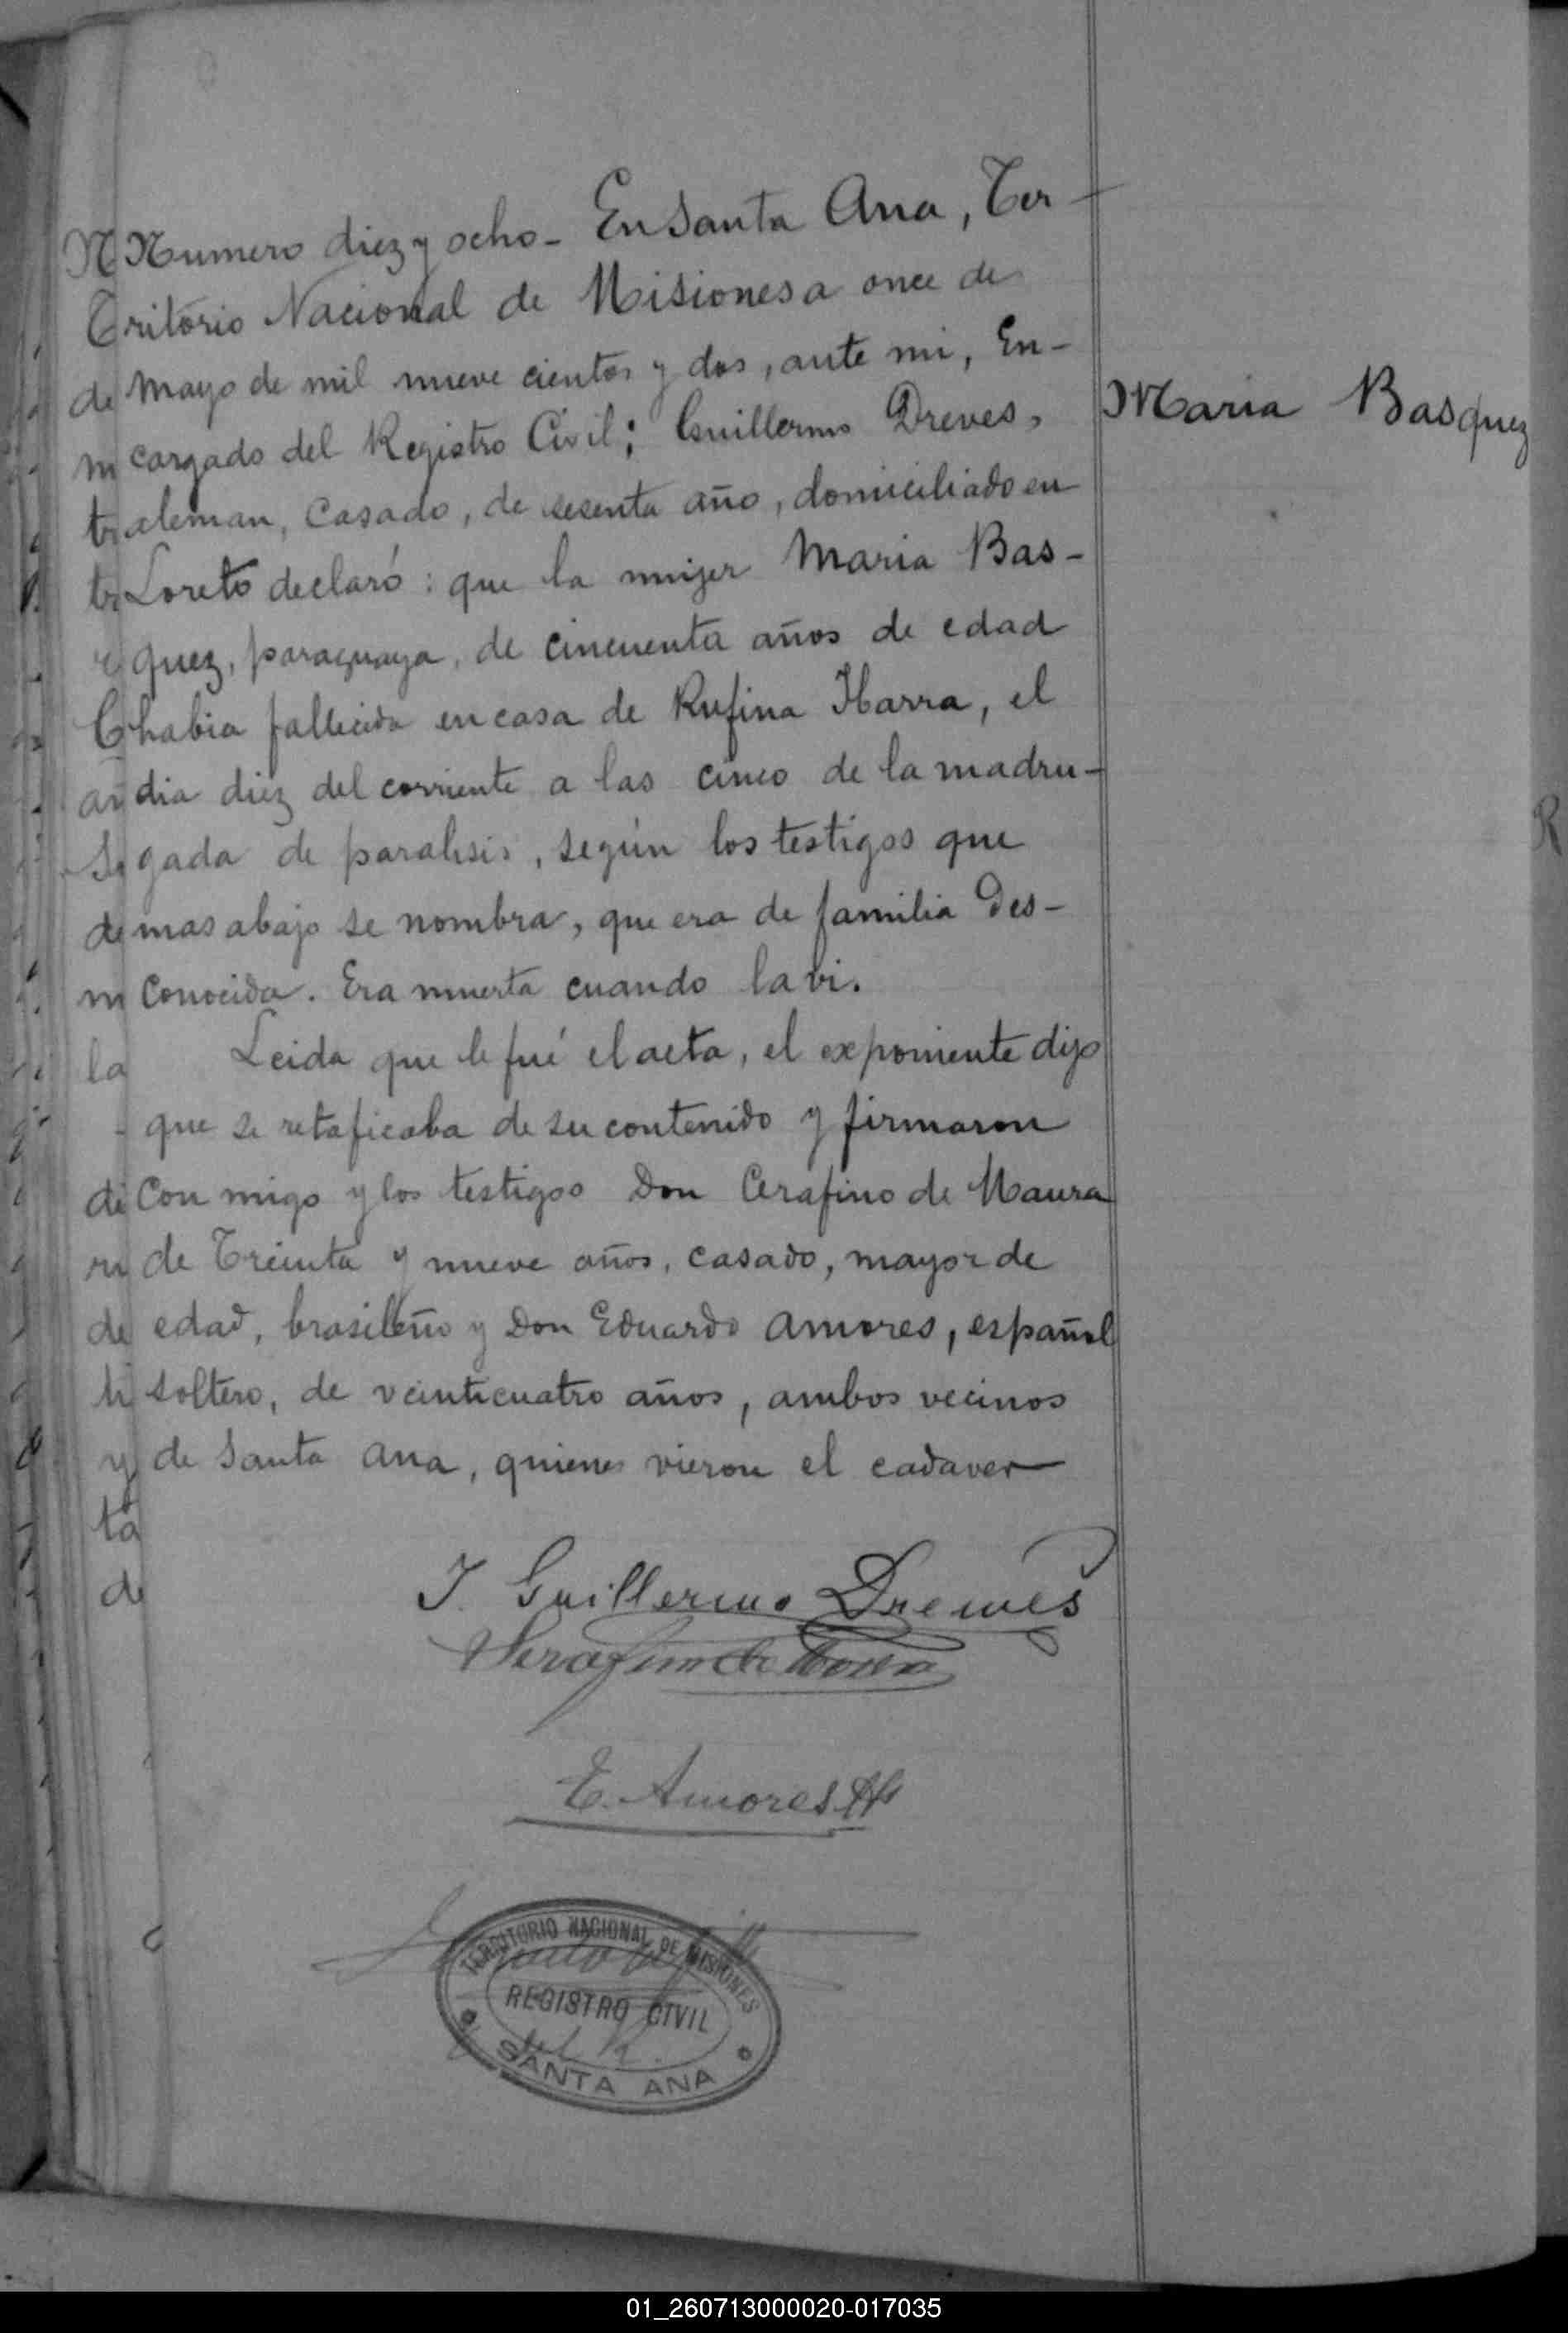 Numero diez y ocho - En Santa Ana, Ter-
ritorio Nacional de Misiones a once de
Mayo de mil nueve cientos y dos, ante mi, En-
cargado del Registro Civil; Guillermo Dreves,
Maria Basquez
aleman, Casado, de sesenta año, domiciliado en
Loreto declaró: que la mujer Maria Bas-
quez, paraguaya, de cincuenta años de edad
habia fallecida en casa de Rufina Ibarra, el
dia diez del corriente a las cinco de la madru-
gada de paralisis, según los testigos que
mas abajo se nombra, que era de familia des-
conocida. Era muerta cuando la vi.
Leida que le fué el acta, el exponiente dijo
que se retaficaba de su contenido y firmaron
con migo y los testigos Don Cerafino de Maura
de Treinta y nueve años, casado, mayor de
edad, brasileño y Don Eduardo Amores, español
soltero, de veinticuatro años, ambos vecinos
de Santa Ana, quienes vieron el cadaver
J. Guillermo Drewes
E. Amores
TERRITORIO NACIONAL DE MISIONES
REGISTRO CIVIL
SANTA ANA
01_260713000020-017035